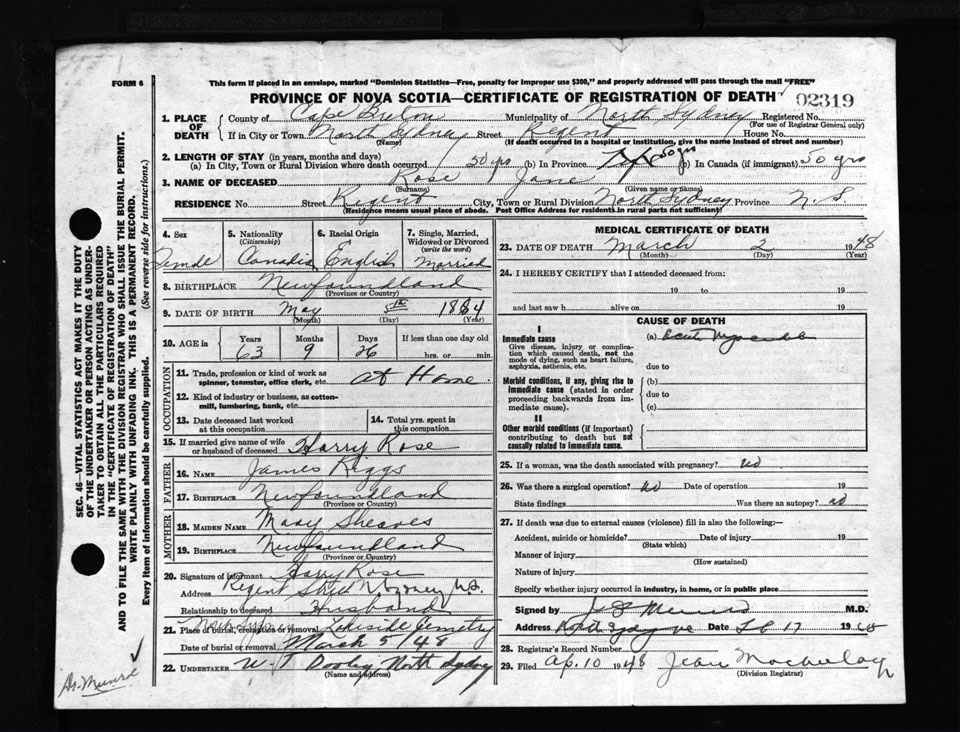 FORM 6
This form if placed in an envelope, marked "Dominion Statistics—Free, penalty for improper use $300," and properly addressed will pass through the mail "FREE"
PROVINCE OF NOVA SCOTIA—CERTIFICATE OF REGISTRATION OF DEATH
02319
1. PLACE OF DEATH
County of Cape Breton Municipality of North Sydney Registered No.
(For use of Registrar General only)
If in City or Town North Sydney Street Regent House No.
(Name) (If death occurred in a hospital or institution, give the name instead of street and number)
2. LENGTH OF STAY (in years, months and days)
(a) In City, Town or Rural Division where death occurred 50 yrs (b) In Province 50 yrs (c) In Canada (if immigrant) 50 yrs
3. NAME OF DECEASED Rose Jane
(Surname) (Given name or names)
RESIDENCE No. Street Regent City, Town or Rural Division North Sydney Province N.S.
(Residence means usual place of abode. Post Office Address for residents in rural parts not sufficient)
4. Sex
Female
5. Nationality (Citizenship)
6. Racial Origin
English
7. Single, Married, Widowed or Divorced (write the word)
Married
8. BIRTHPLACE Newfoundland
(Province or Country)
9. DATE OF BIRTH May 5th 1884
(Month) (Day) (Year)
10. AGE in Years Months Days If less than one day old
63 9 26 hrs. or min.
OCCUPATION
11. Trade, profession or kind of work as spinner, teamster, office clerk, etc. at Home.
12. Kind of industry or business, as cotton-mill, lumbering, bank, etc.
13. Date deceased last worked at this occupation
14. Total yrs. spent in this occupation
15. If married give name of wife or husband of deceased Harry Rose
FATHER
16. NAME James Riggs
17. BIRTHPLACE Newfoundland
(Province or Country)
MOTHER
18. MAIDEN NAME Mary Sheaves
19. BIRTHPLACE Newfoundland
(Province or Country)
20. Signature of informant Harry Rose
Address Regent Street N Sydney N.S.
Relationship to deceased Husband
21. Place of burial, cremation or removal Lakeside Cemetery
Date of burial or removal March 5/48
22. UNDERTAKER W-J Dooley North Sydney
(Name and address)
MEDICAL CERTIFICATE OF DEATH
23. DATE OF DEATH March 2 1948
(Month) (Day) (Year)
24. I HEREBY CERTIFY that I attended deceased from:
19 to 19
and last saw h alive on 19
CAUSE OF DEATH
I
Immediate cause
Give disease, injury or complication which caused death, not the mode of dying, such as heart failure, asphyxia, asthenia, etc.
(a)
due to
Morbid conditions, if any, giving rise to immediate cause (stated in order proceeding backwards from immediate cause).
(b)
due to
(c)
II
Other morbid conditions (if important) contributing to death but not causally related to immediate cause.
25. If a woman, was the death associated with pregnancy? no
26. Was there a surgical operation? no Date of operation 19
State findings Was there an autopsy? no
27. If death was due to external causes (violence) fill in also the following:—
Accident, suicide or homicide? Date of injury 19
(State which)
Manner of injury
(How sustained)
Nature of injury
Specify whether injury occurred in industry, in home, or in public place
Signed by Munro M.D.
Address Date 17 19
28. Registrar's Record Number
29. Filed Ap. 10 1948 Jean Macaulay
(Division Registrar)
SEC. 46—VITAL STATISTICS ACT MAKES IT THE DUTY
OF THE UNDERTAKER OR PERSON ACTING AS UNDER-
TAKER TO OBTAIN ALL THE PARTICULARS REQUIRED
IN THE "CERTIFICATE OF REGISTRATION OF DEATH"
AND TO FILE THE SAME WITH THE DIVISION REGISTRAR WHO SHALL ISSUE THE BURIAL PERMIT.
WRITE PLAINLY WITH UNFADING INK. THIS IS A PERMANENT RECORD.
Every item of information should be carefully supplied. (See reverse side for instructions.)
Munro